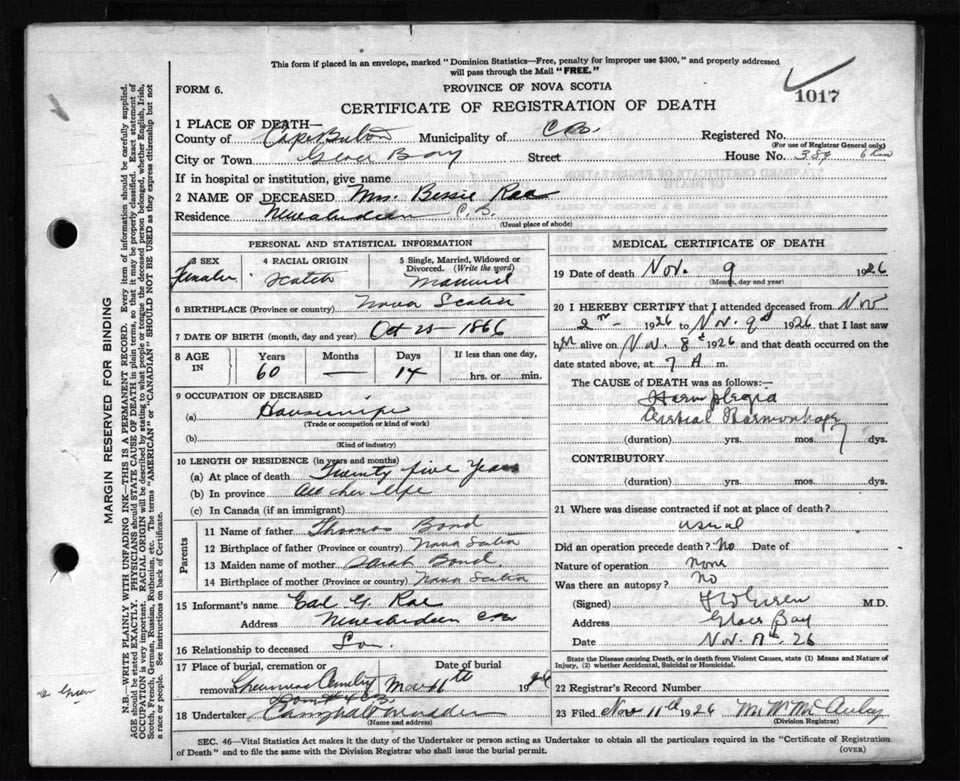 This form if placed in an envelope, marked "Dominion Statistics—Free, penalty for improper use $300," and properly addressed
will pass through the Mail "FREE."
FORM 6.
PROVINCE OF NOVA SCOTIA
1017
CERTIFICATE OF REGISTRATION OF DEATH
1 PLACE OF DEATH—
County of Cape Breton Municipality of C B. Registered No.
(For use of Registrar General only)
City or Town Glace Bay Street House No. 389
If in hospital or institution, give name
2 NAME OF DECEASED Mrs. Bessie Rae
Residence Newaberdeen C. B.
(Usual place of abode)
PERSONAL AND STATISTICAL INFORMATION
3 SEX Female 4 RACIAL ORIGIN Scotch 5 Single, Married, Widowed or Divorced. (Write the word) Married
6 BIRTHPLACE (Province or country) Nova Scotia
7 DATE OF BIRTH (month, day and year) Oct 25 - 1866
8 AGE IN Years 60 Months — Days 14 If less than one day, ......hrs. or ......min.
9 OCCUPATION OF DECEASED
(a) Housewife
(Trade or occupation or kind of work)
(b)
(Kind of industry)
10 LENGTH OF RESIDENCE (in years and months)
(a) At place of death Twenty five Years
(b) In province All her life
(c) In Canada (if an immigrant)
Parents
11 Name of father Thomas Bond
12 Birthplace of father (Province or country) Nova Scotia
13 Maiden name of mother Sarah Bond
14 Birthplace of mother (Province or country) Nova Scotia
15 Informant's name G. Rae
Address Newaberdeen CB
16 Relationship to deceased Son.
17 Place of burial, cremation or removal Date of burial
Nov 11th 1926
18 Undertaker
(Name and address)
MEDICAL CERTIFICATE OF DEATH
19 Date of death Nov. 9 1926
(Month, day and year)
20 I HEREBY CERTIFY that I attended deceased from Nov
2nd - 1926 to Nov. 9th 1926, that I last saw
her alive on Nov. 8th 1926 and that death occurred on the
date stated above, at 7 A m.
The CAUSE OF DEATH was as follows:—
Hemiplegia
Cerebral Haemorrhage
(duration) yrs. mos. 7 dys.
CONTRIBUTORY
(duration) yrs. mos. dys.
21 Where was disease contracted if not at place of death?
usual
Did an operation precede death? No Date of
Nature of operation None
Was there an autopsy? No
(Signed) M.D.
Address Glace Bay
Date Nov. 26
State the Disease causing Death, or in death from Violent Causes, state (1) Means and Nature of Injury, (2) whether Accidental, Suicidal or Homicidal.
22 Registrar's Record Number
23 Filed Nov 11th 1926
(Division Registrar)
SEC. 46—Vital Statistics Act makes it the duty of the Undertaker or person acting as Undertaker to obtain all the particulars required in the "Certificate of Registration
of Death" and to file the same with the Division Registrar who shall issue the burial permit.
(OVER)
MARGIN RESERVED FOR BINDING
N.B.—WRITE PLAINLY WITH UNFADING INK—THIS IS A PERMANENT RECORD. Every item of information should be carefully supplied.
AGE should be stated EXACTLY. PHYSICIANS should STATE CAUSE OF DEATH in plain terms, so that it may be properly classified. Exact statement of
OCCUPATION is very important. RACIAL ORIGIN will be described by stating to what people or tongue the deceased person belonged, whether English, Irish,
Scotch, French, German, Russian, Ruthenian, etc. The terms "AMERICAN" or "CANADIAN" SHOULD NOT BE USED as they express citizenship but not
a race or people. See instructions on back of Certificate.